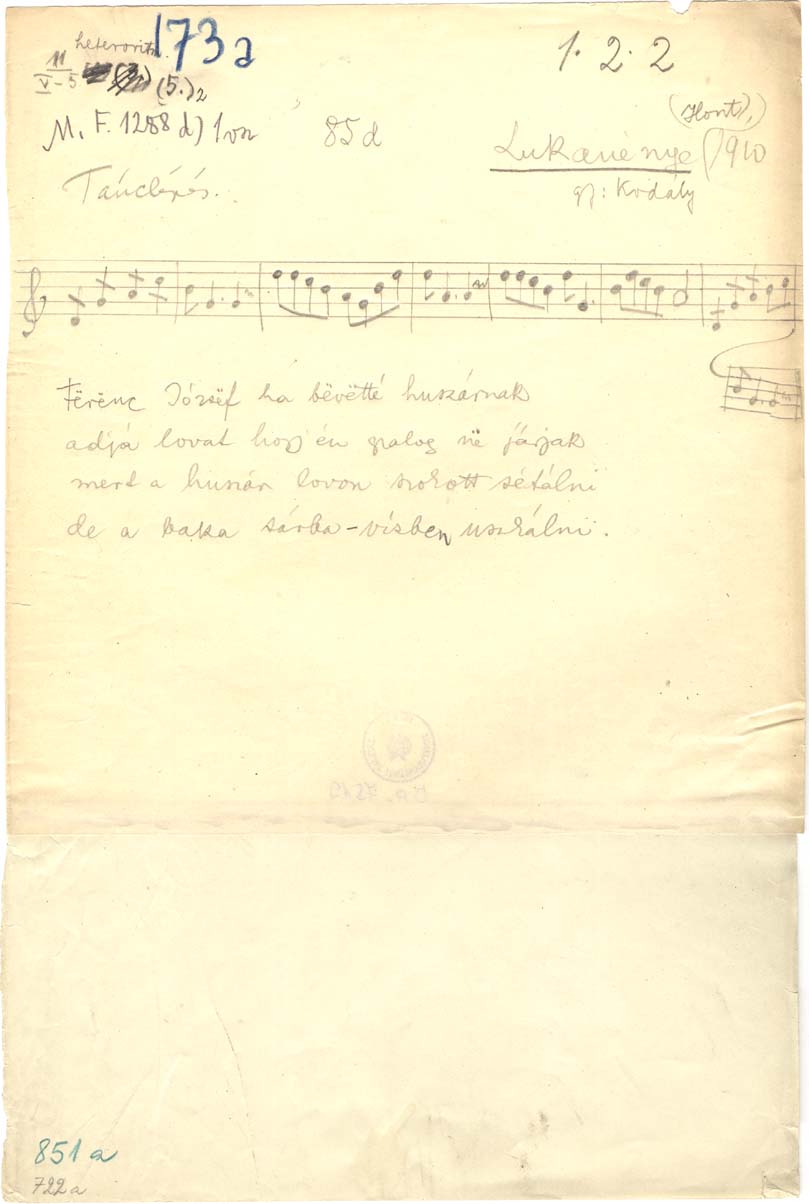 heterorit.
173a
1. 2. 2
11
V-5 (5.)2
M. F. 1288 d) 1 von
85 d
(Hont),
Lukanénye 1910
gy: Kodály
Tánclépés.
Fërënc József ha bëvëtté huszárnak
adjá lovat hogy én gyalog në járjak
mert a huszár lovon szokott sétálni
de a baka sárba-vízben uszkálni.
851 a
722 a